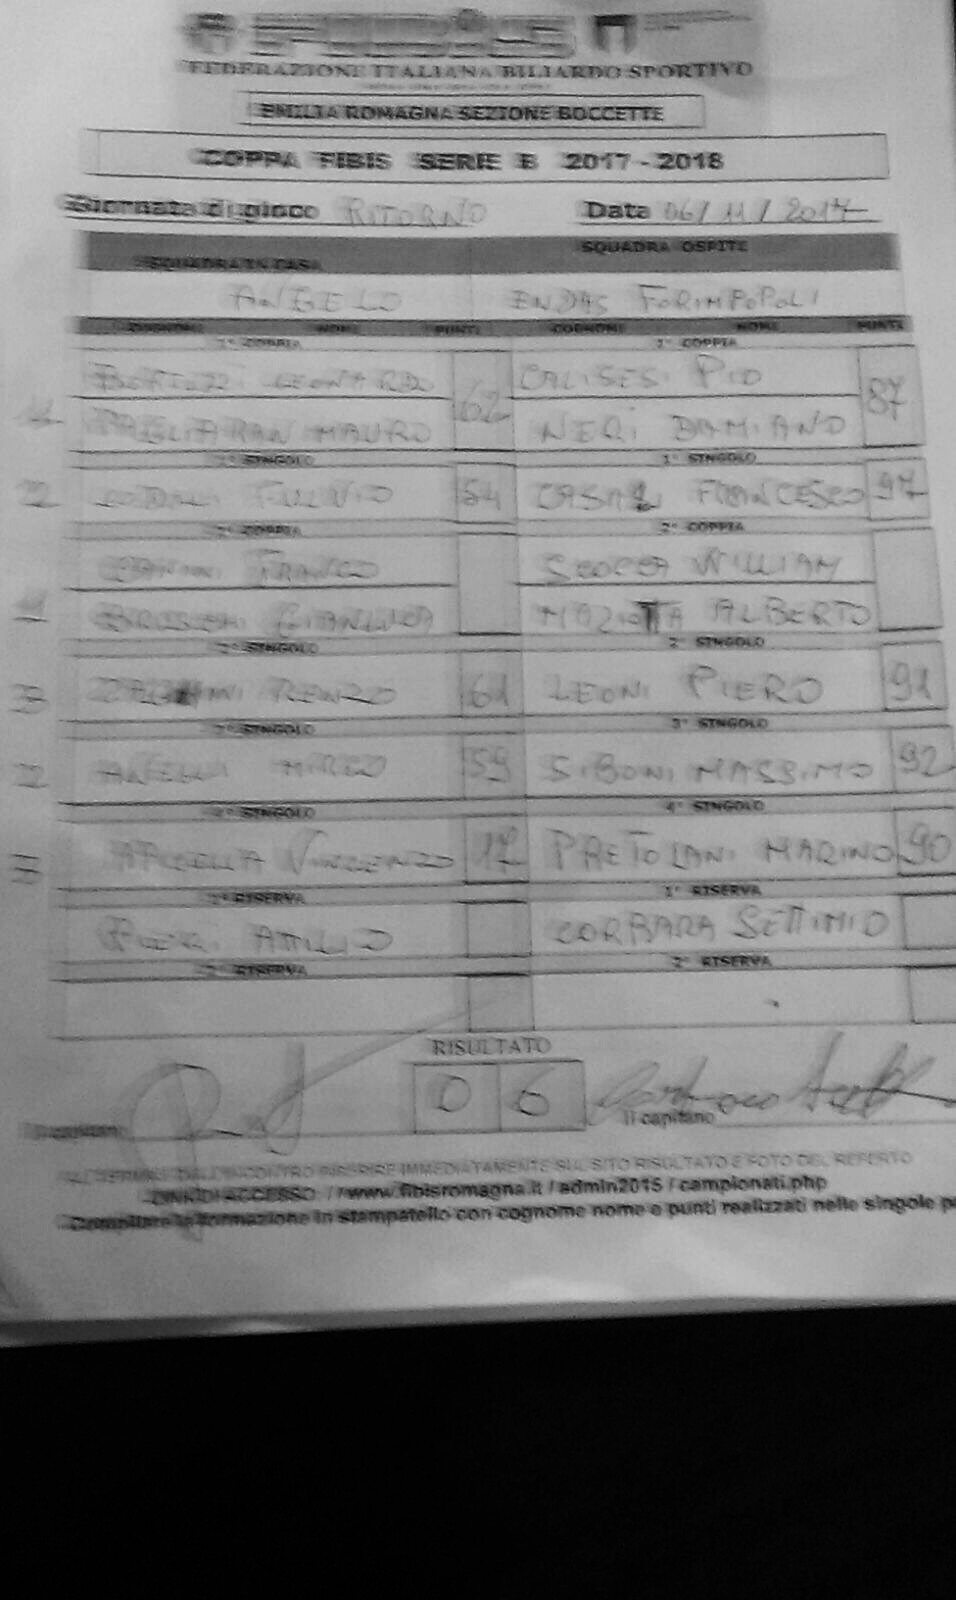 FIBIS
FEDERAZIONE ITALIANA BILIARDO SPORTIVO
EMILIA ROMAGNA SEZIONE BOCCETTE
COPPA FIBIS SERIE B 2017 - 2018
Giornata di gioco RITORNO Data 06/11/2017
SQUADRA IN CASA SQUADRA OSPITE
ANGELO ENDAS FORIMPOPOLI
COGNOME NOME PUNTI COGNOME NOME PUNTI
1° COPPIA 1° COPPIA
LEONARDO 62 CALISESI PIO 87
MAURO NERI DAMIANO
1° SINGOLO 1° SINGOLO
FULVIO 54 CASALI FRANCESCO 97
2° COPPIA 2° COPPIA
FRANCO WILLIAM
GIANLUCA MAZIOTTA ALBERTO
2° SINGOLO 2° SINGOLO
RENZO 61 LEONI PIERO 91
3° SINGOLO 3° SINGOLO
MIRCO 59 SIBONI MASSIMO 92
4° SINGOLO 4° SINGOLO
VINCENZO 17 PRETOLANI MARINO 90
1° RISERVA 1° RISERVA
PIERI ATTILIO CORBARA SETTIMIO
2° RISERVA 2° RISERVA
RISULTATO
0 6
Il capitano Il capitano
AL TERMINE DELL'INCONTRO INSERIRE IMMEDIATAMENTE SUL SITO RISULTATO E FOTO DEL REFERTO
LINK DI ACCESSO / /www.fibisromagna.it / admin2015 / campionati.php
Compilare la formazione in stampatello con cognome nome e punti realizzati nelle singole